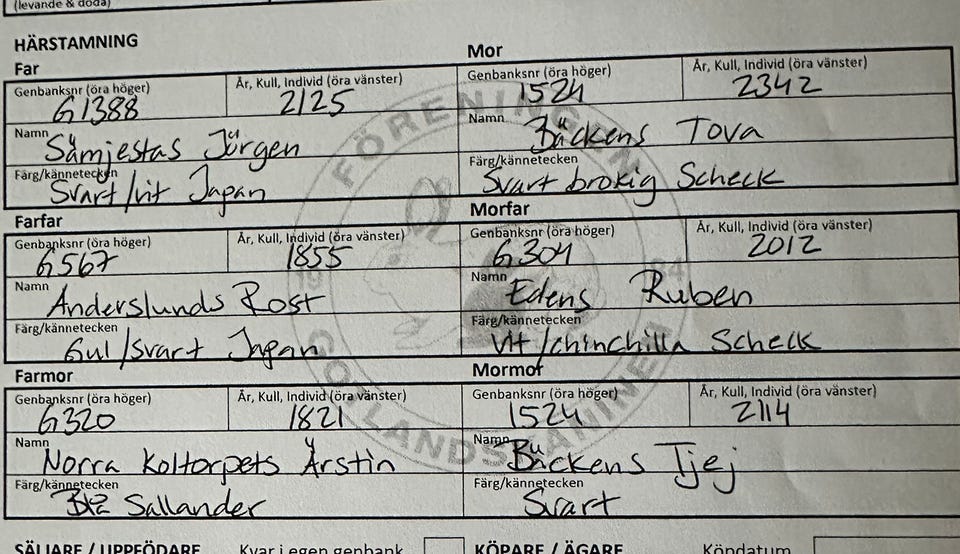 (levande & döda)
HÄRSTAMNING
Far Mor
Genbanksnr (öra höger) År, Kull, Individ (öra vänster) Genbanksnr (öra höger) År, Kull, Individ (öra vänster)
G1388 2125 1524 2342
Namn Namn
Sämjestas Jürgen Bäckens Tova
Färg/kännetecken Färg/kännetecken
Svart/vit Japan Svart brokig Scheck
Farfar Morfar
Genbanksnr (öra höger) År, Kull, Individ (öra vänster) Genbanksnr (öra höger) År, Kull, Individ (öra vänster)
G567 1855 G304 2012
Namn Namn
Anderslunds Rost Edens Ruben
Färg/kännetecken Färg/kännetecken
Gul/svart Japan Vit/chinchilla Scheck
Farmor Mormor
Genbanksnr (öra höger) År, Kull, Individ (öra vänster) Genbanksnr (öra höger) År, Kull, Individ (öra vänster)
G320 1821 1524 2114
Namn Namn
Norra Koltorpets Bäckens Tjej
Färg/kännetecken Färg/kännetecken
Sallander Svart
SÄLJARE / UPPFÖDARE Kvar i egen genbank KÖPARE / ÄGARE Köpdatum
FÖRENINGEN
GOTLANDSKANINEN
19 94